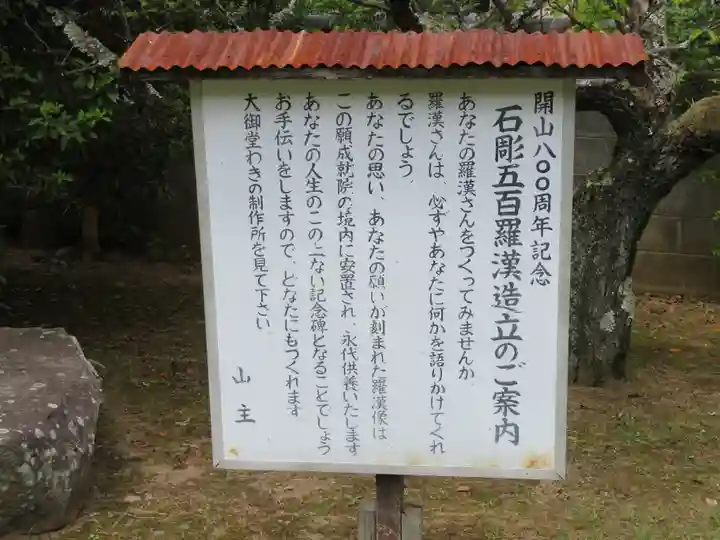 開山八〇〇周年記念
石彫五百羅漢造立のご案内
あなたの羅漢さんをつくってみませんか
羅漢さんは、必ずやあなたに何かを語りかけてくれ
るでしょう。
あなたの思い、あなたの願いが刻まれた羅漢像は
この願成就院の境内に安置され、永代供養いたします
あなたの人生のこの上ない記念碑となることでしょう
お手伝いをしますので、どなたにもつくれます
大御堂わきの制作所を見て下さい
山主